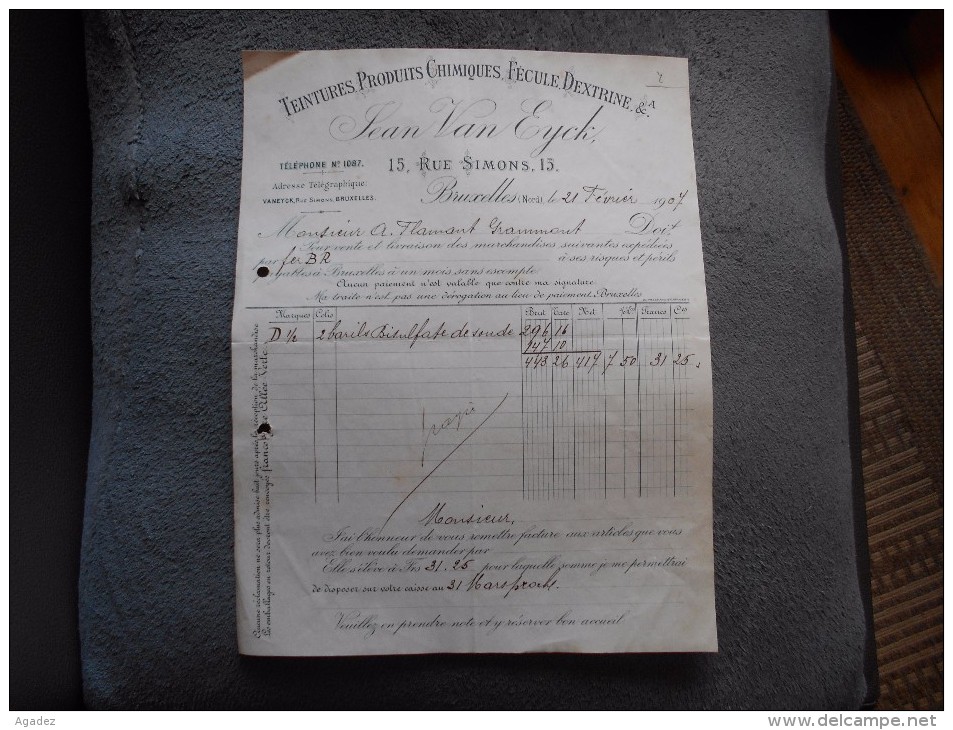 TEINTURES, PRODUITS CHIMIQUES, FÉCULE, DEXTRINE, &A.
Jean Van Eyck,
TÉLÉPHONE No 1087.
15, RUE SIMONS, 15.
Adresse Télégraphique:
VANEYCK, RUE SIMONS, BRUXELLES.
Bruxelles (Nord), le 21 Février 1907
Monsieur A. Flamant Grammont Doit
Pour vente et livraison des marchandises suivantes expédiées
par fer BR à ses risques et périls
payables à Bruxelles à un mois sans escompte
Aucun paiement n'est valable que contre ma signature.
Ma traite n'est pas une dérogation au lieu de paiement, Bruxelles
Marques Colis Brut Tare Net Francs Cts
D 1/2 2 barils Bisulfate de soude 296 16
147 10
443 26 417 7 50 31 25
Monsieur,
J'ai l'honneur de vous remettre facture aux articles que vous
avez bien voulu demander par
Elle s'élève à Frs 31.25 pour laquelle somme je me permettrai
de disposer sur votre caisse au 31 Mars proch.
Veuillez en prendre note et y réserver bon accueil
Aucune réclamation ne sera plus admise huit jours après la réception de la marchandise
Les emballages en retour doivent être envoyés franco gare Allée Verte.
Agadez
www.delcampe.net